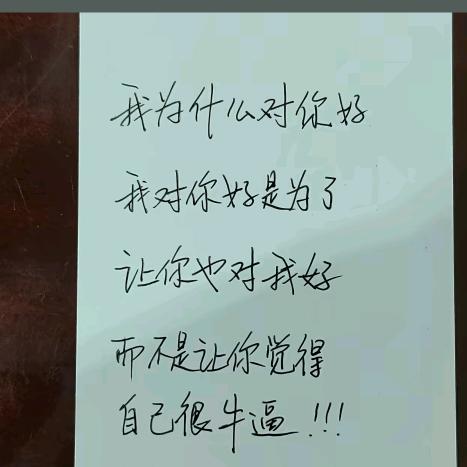 我为什么对你好
我对你好是为了
让你也对我好
而不是让你觉得
自己很牛逼!!!